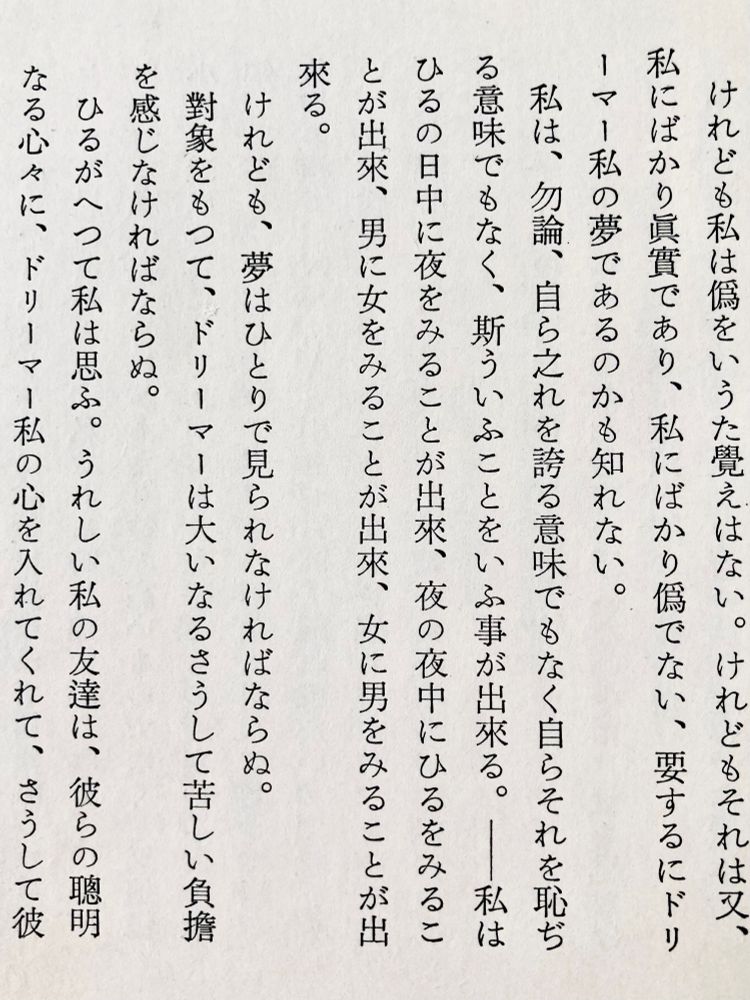 けれども私は僞をいうた覺えはない。けれどもそれは又、
私にばかり眞實であり、私にばかり僞でない、要するにドリ
ーマー私の夢であるのかも知れない。
私は、勿論、自ら之れを誇る意味でもなく自らそれを恥ぢ
る意味でもなく、斯ういふことをいふ事が出來る。――私は
ひるの日中に夜をみることが出來、夜の夜中にひるをみるこ
とが出來、男に女をみることが出來、女に男をみることが出
來る。
けれども、夢はひとりで見られなければならぬ。
對象をもつて、ドリーマーは大いなるさうして苦しい負擔
を感じなければならぬ。
ひるがへつて私は思ふ。うれしい私の友達は、彼らの聰明
なる心々に、ドリーマー私の心を入れてくれて、さうして彼